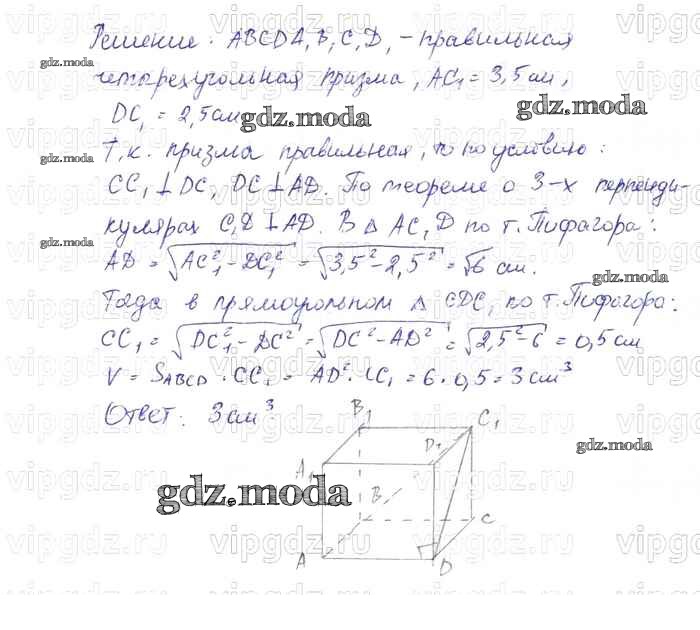 Решение: ABCDA₁B₁C₁D₁ - правильная
четырехугольная призма, AC₁ = 3,5 см,
DC₁ = 2,5 см
Т.к. призма правильная, то по условию:
CC₁ ⊥ DC, DC ⊥ AD. По теореме о 3-х перпенди-
кулярах C₁D ⊥ AD. В △ AC₁D по т. Пифагора:
AD = √(AC₁² - DC₁²) = √(3,5² - 2,5²) = √6 см.
Тогда в прямоугольном △ CDC₁ по т. Пифагора:
CC₁ = √(DC₁² - DC²) = √(DC² - AD²) = √(2,5² - 6) = 0,5 см
V = S_ABCD · CC₁ = AD² · CC₁ = 6 · 0,5 = 3 см³
Ответ: 3 см³
B₁
C₁
D₁
A₁
B
C
A
D
gdz.moda
gdz.moda
gdz.moda
gdz.moda
gdz.moda
gdz.moda
gdz.moda
gdz.moda
vipgdz.ru